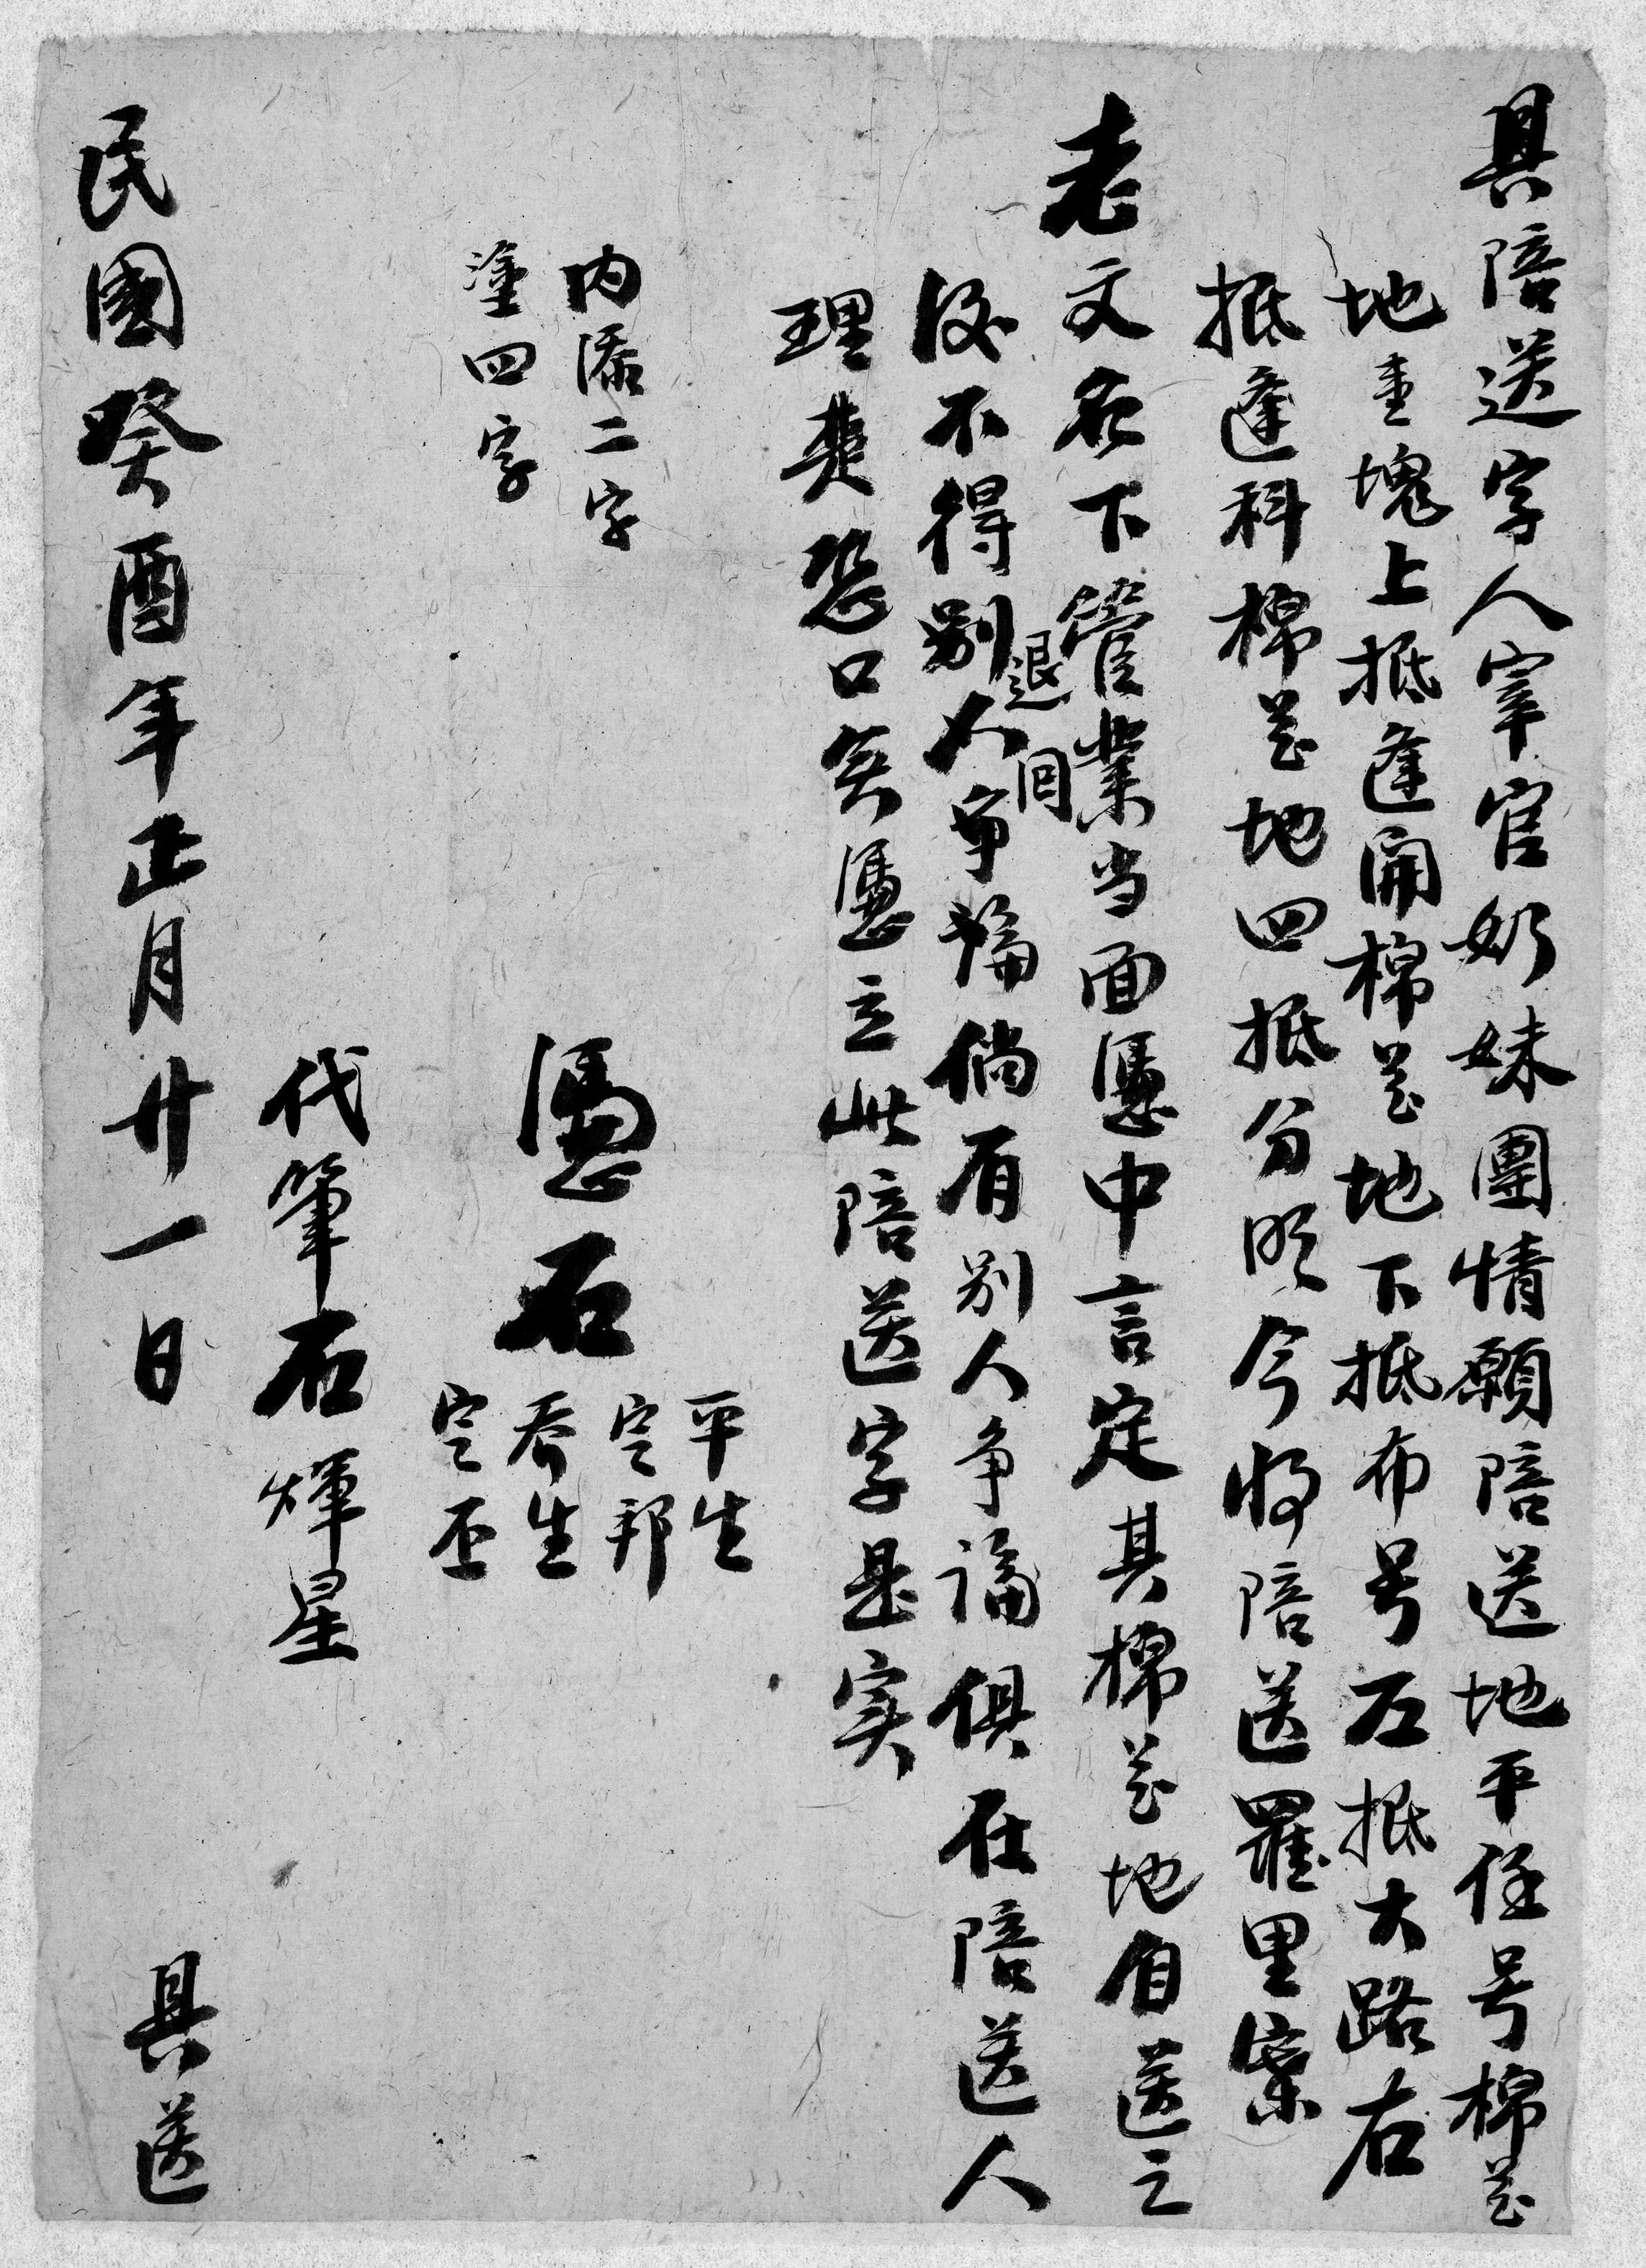 具陪送字人宰官奶妹團情願陪送地平任号棉花
地壹塊上抵逢開棉花地下抵布号左抵大路右
抵逢科棉花地四抵分明今將陪送羅里寨
老文名下管業当面憑中言定其棉花地自送之
退回
後不得別人爭論倘有別人争論俱在陪送人
理楚恐口無憑立此陪送字是实
内添二字
塗四字
憑石
平生
定邦
喬生
定丕
代筆石輝星
民國癸酉年正月廿一日 具送